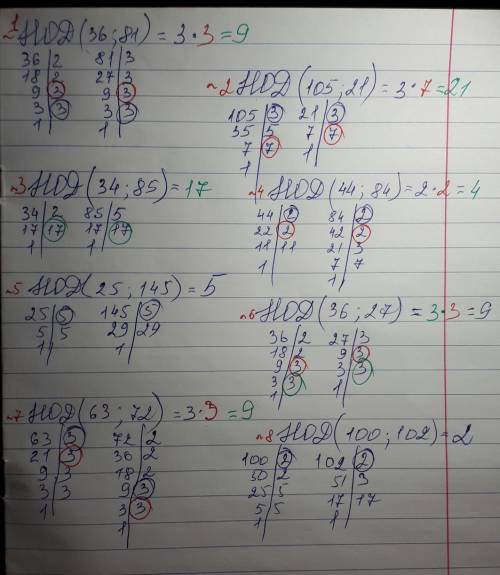 ~1 НОД(36;81) = 3·3=9
36|2 81|3
18|2 27|3
9|3 9|3
3|3 3|3
1| 1|
~2 НОД(105;21) = 3·7=21
105|3 21|3
35|5 7|7
7|7 1|
1|
~3 НОД(34;85)=17
34|2 85|5
17|17 17|17
1| 1|
~4 НОД(44;84)=2·2=4
44|2 84|2
22|2 42|2
11|11 21|3
1| 7|7
1|
~5 НОД(25;145)=5
25|5 145|5
5|5 29|29
1| 1|
~6 НОД(36;27) =3·3=9
36|2 27|3
18|2 9|3
9|3 3|3
3|3 1|
1|
~7 НОД(63;72)=3·3=9
63|3 72|2
21|3 36|2
9|3 18|2
3|3 9|3
1| 3|3
1|
~8 НОД(100;102)=2
100|2 102|2
50|2 51|3
25|5 17|17
5|5 1|
1|